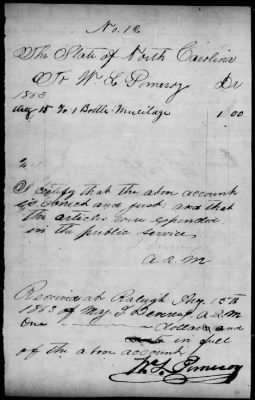 No. 12
The State of North Carolina
To W. L. Pomeroy Dr
1863
Aug 15 To 1 Bottle Mucilage 1.00
I certify that the above account
is correct and just; and that
the articles were expended
in the public service
A.Q.M
Received at Raleigh Aug. 15th
1863 of Maj. J. Devereux A.Q.M
One dollars and
in full
of the above account
W. L. Pomeroy